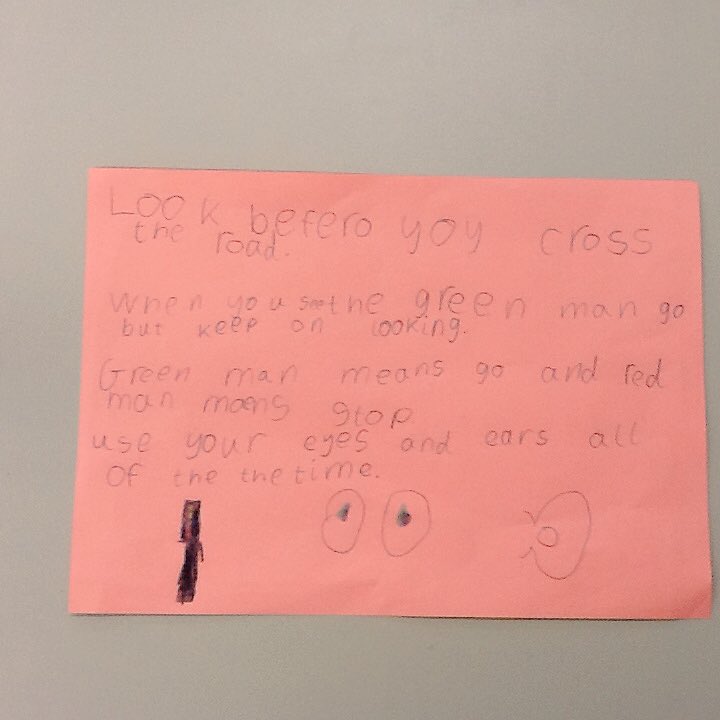 Look befero yoy cross
the road.
When you see the green man go
but keep on looking.
Green man means go and red
man means stop
use your eyes and ears all
of the the time.